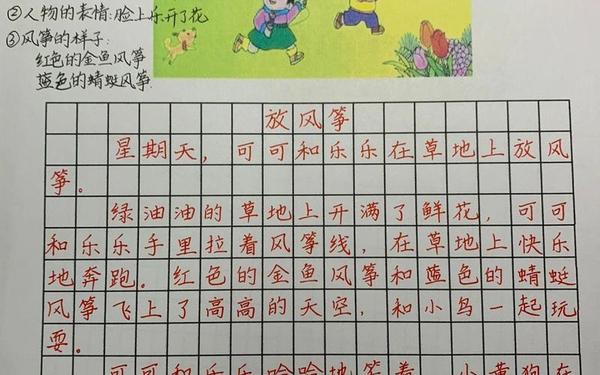 ②人物的表情:脸上乐开了花
③风筝的样子:
红色的金鱼风筝
蓝色的蜻蜓风筝
放风筝
星期天，可可和乐乐在草地上放风
筝。
绿油油的草地上开满了鲜花，可可
和乐乐手里拉着风筝线，在草地上快乐
地奔跑。红色的金鱼风筝和蓝色的蜻蜓
风筝飞上了高高的天空，和小鸟一起玩
耍。
可可和乐乐哈哈地笑着，小黄狗在